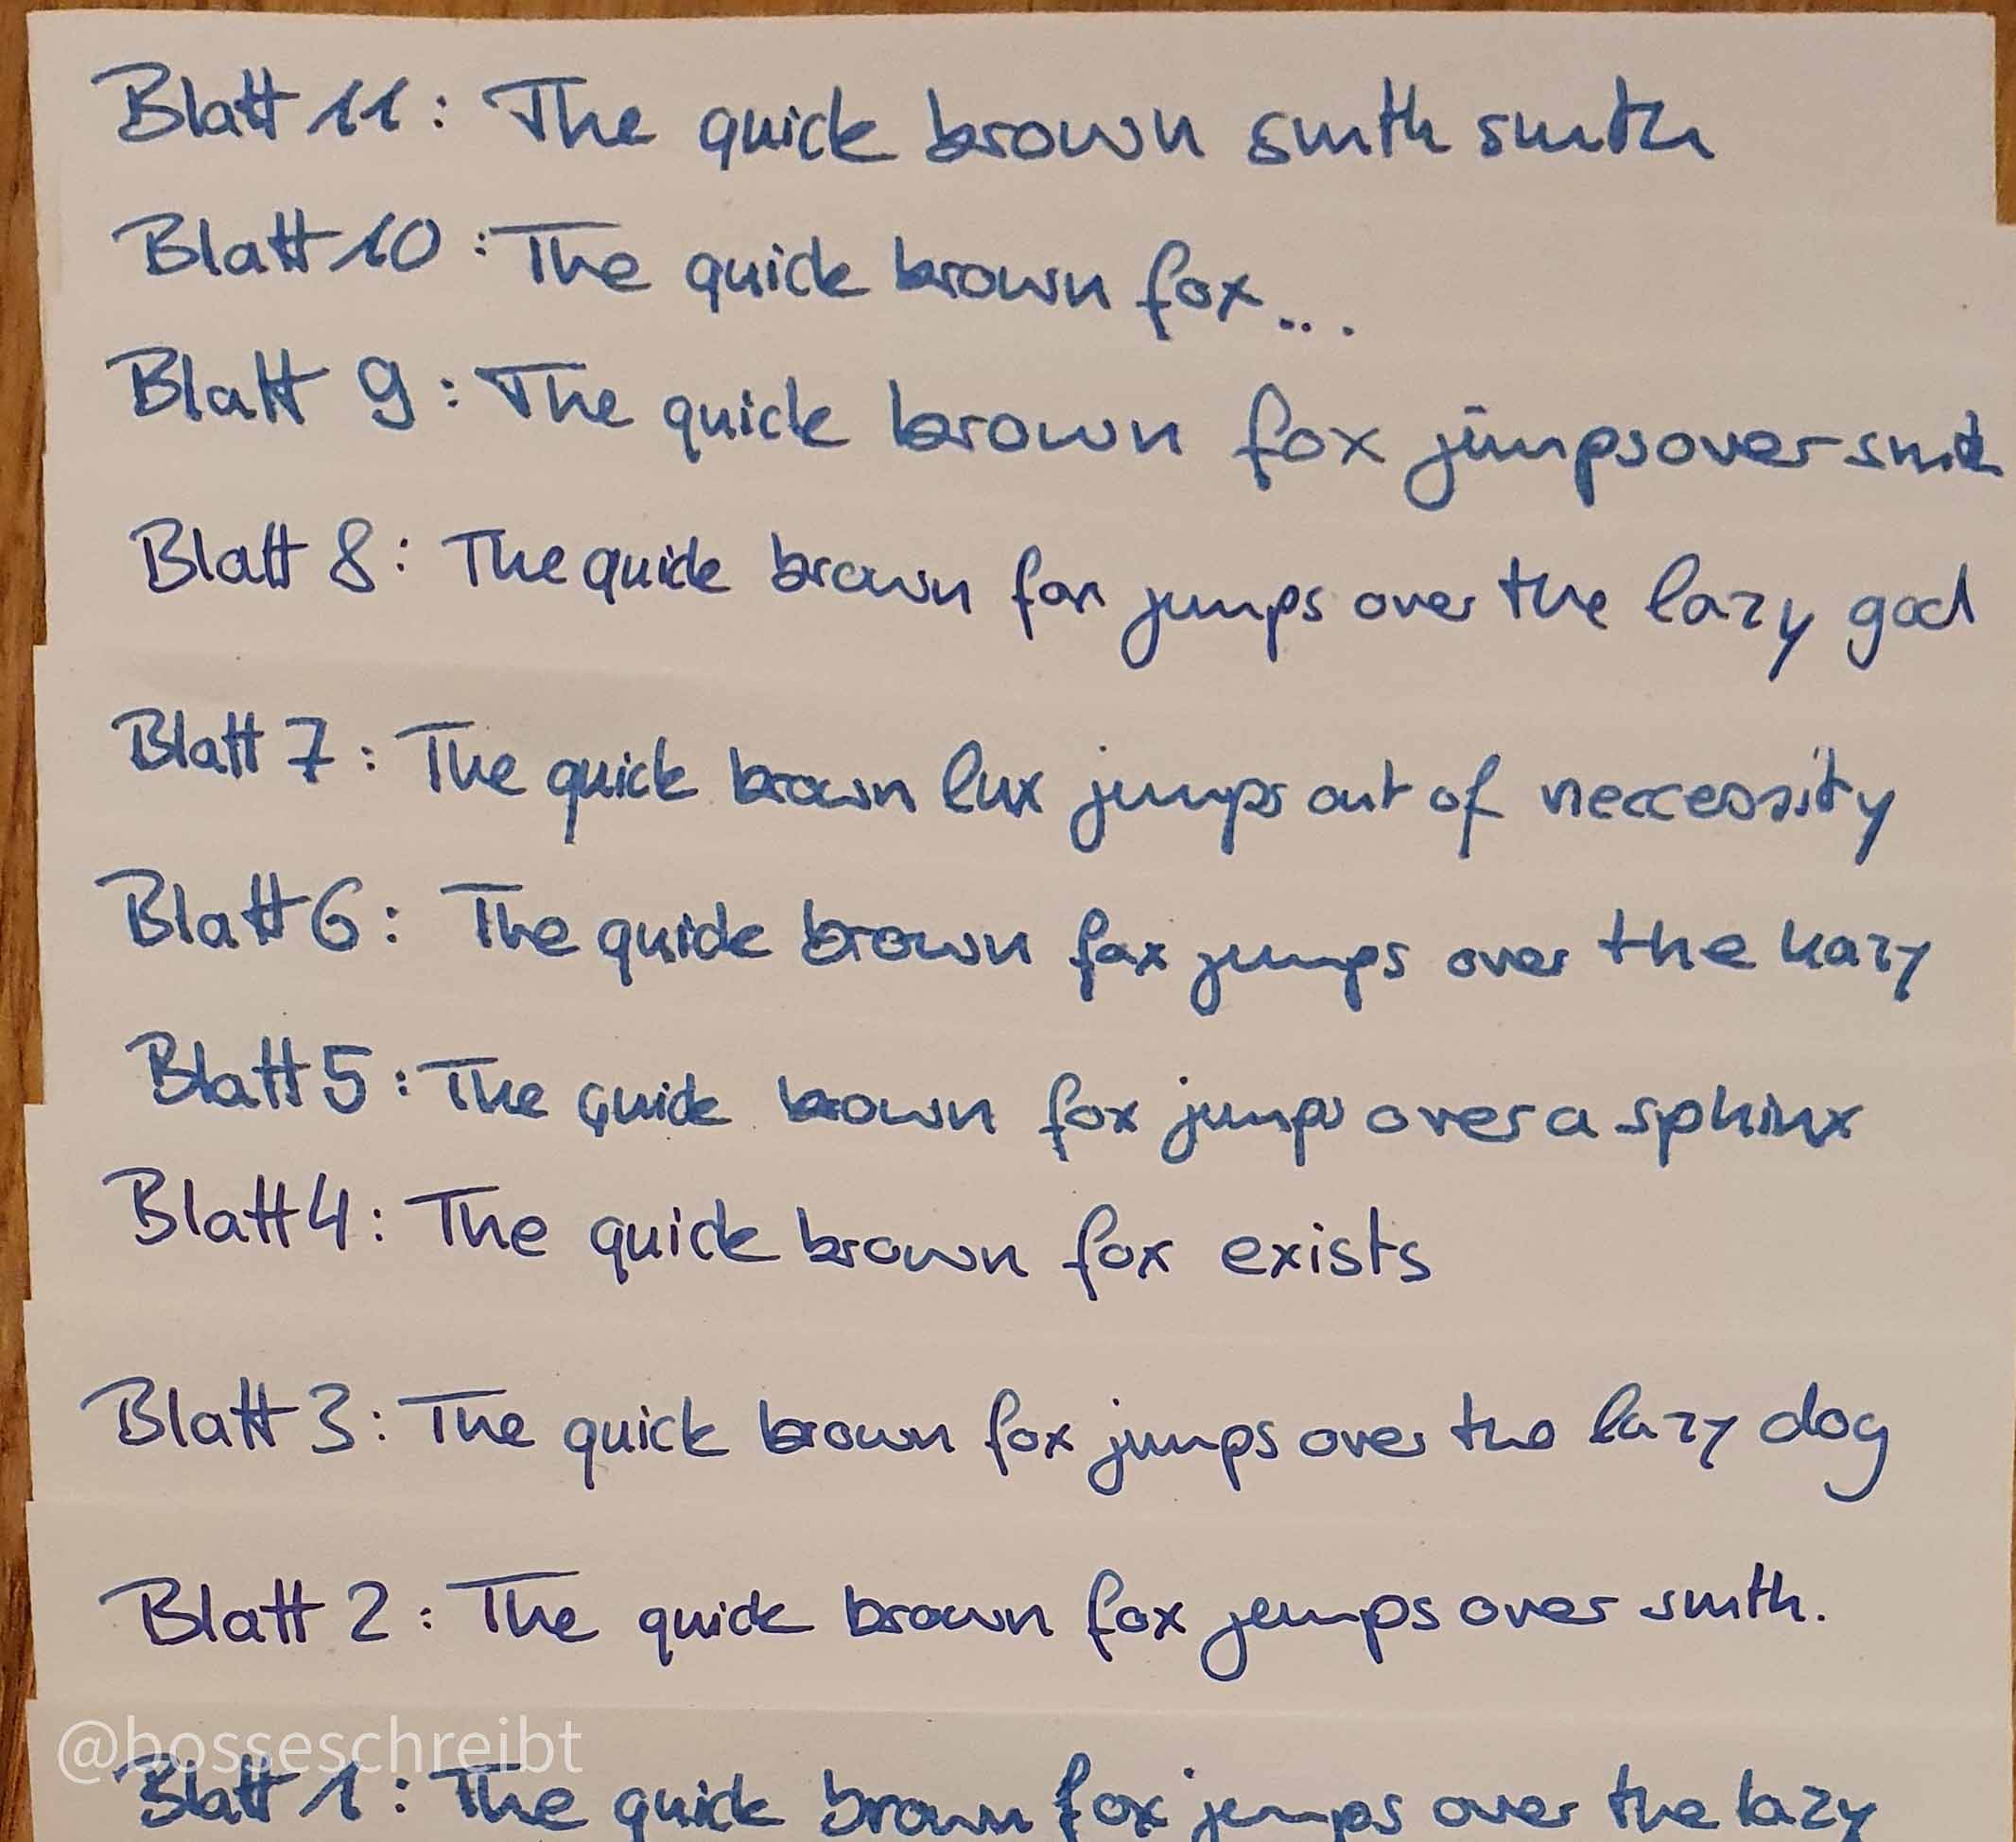 Blatt 11: The quick brown smith smith
Blatt 10: The quick brown fox...
Blatt 9: The quick brown fox jumps over smith
Blatt 8: The quick brown fox jumps over the lazy god
Blatt 7: The quick brown lux jumps out of neccessity
Blatt 6: The quick brown fax jumps over the hazy
Blatt 5: The quick brown fox jumps over a sphinx
Blatt 4: The quick brown fox exists
Blatt 3: The quick brown fox jumps over the lazy dog
Blatt 2: The quick brown fox jumps over smith.
@bosseschreibt
Blatt 1: The quick brown fox jumps over the lazy